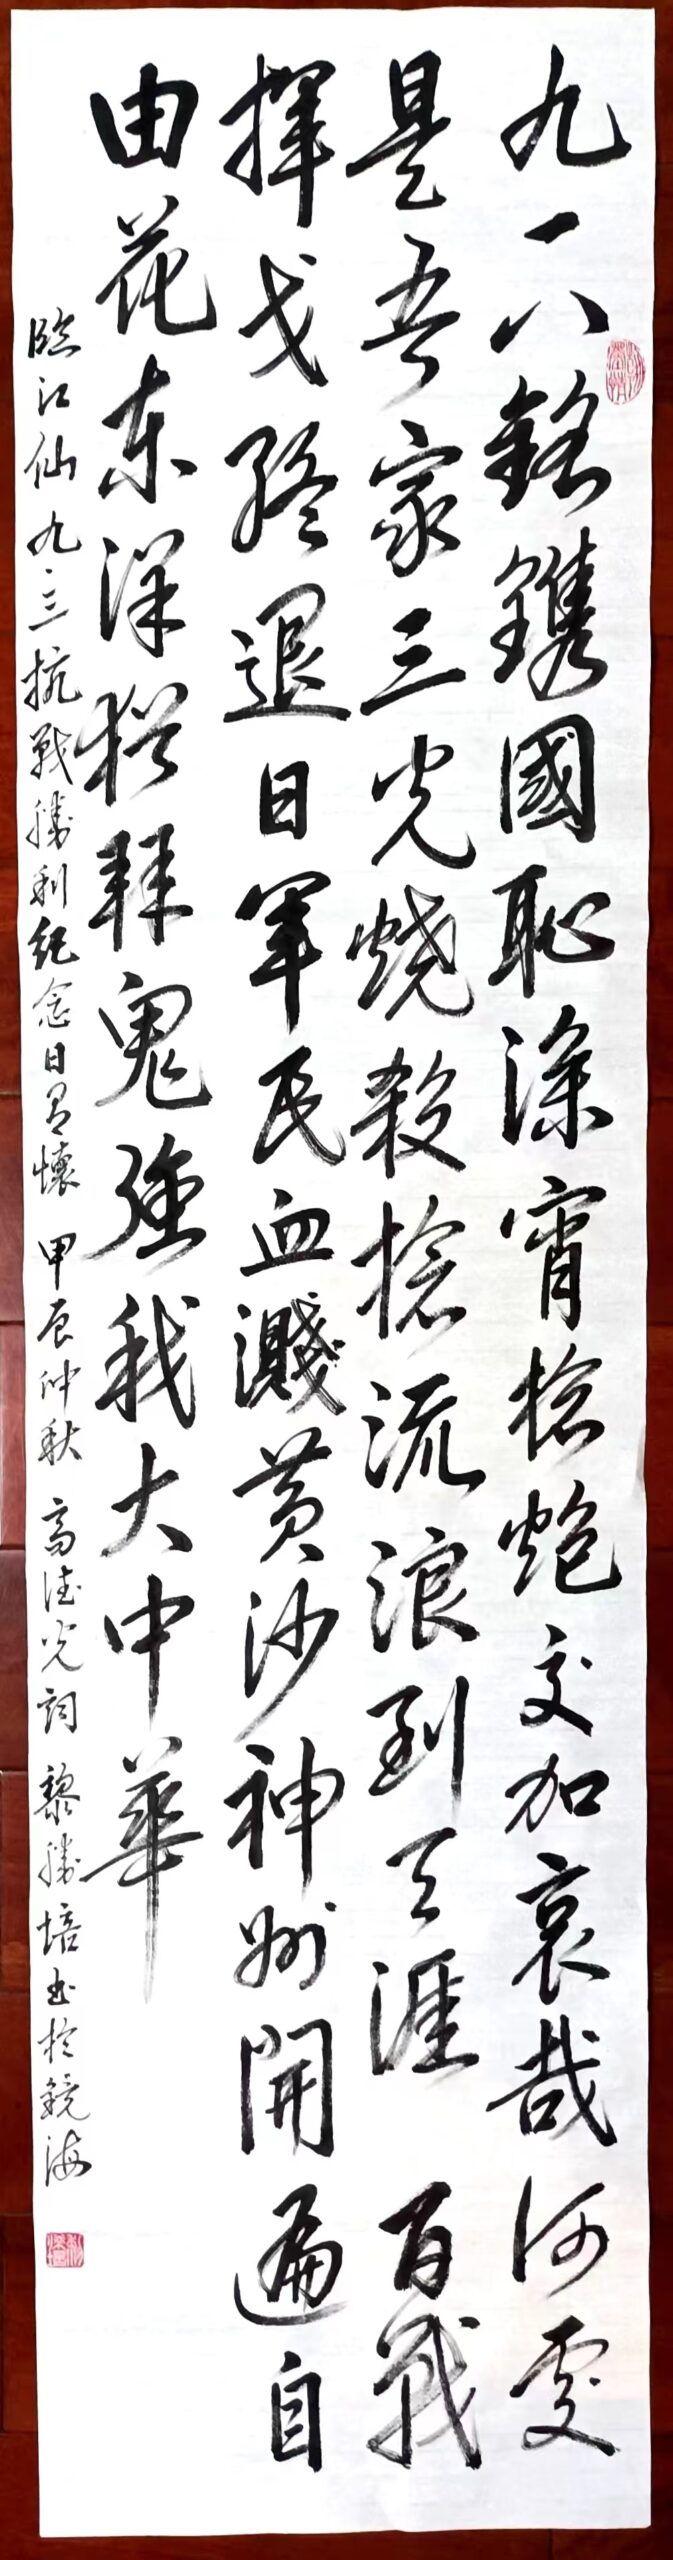 九一八銘鐫國恥深宵槍炮交加哀哉何處
是吾家三光燒殺搶流浪到天涯 百戰
揮戈終退日軍民血濺黃沙神州開遍自
由花東洋猶拜鬼強我大中華
臨江仙九·三抗戰勝利紀念日有懷 甲辰仲秋 高德光詞 黎勝培书於鏡海